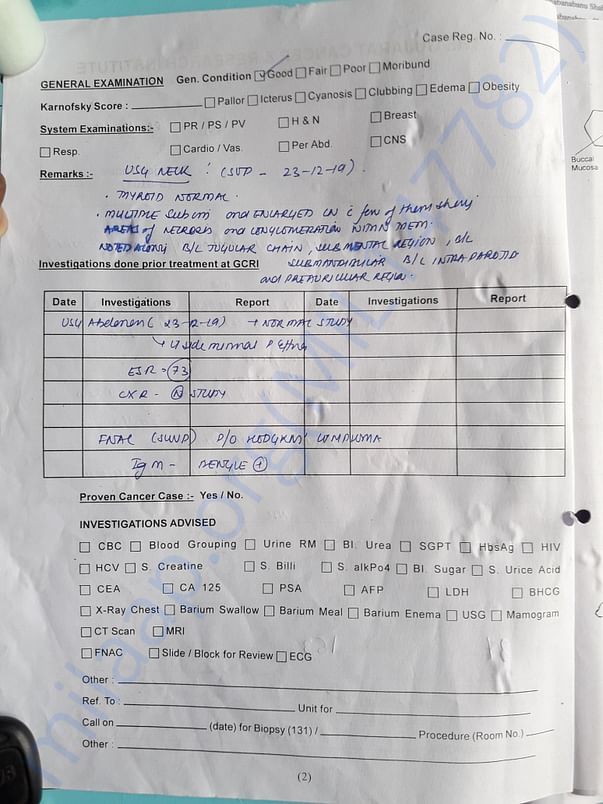 Case Reg. No. :
GENERAL EXAMINATION Gen. Condition Good Fair Poor Moribund
Karnofsky Score : Pallor Icterus Cyanosis Clubbing Edema Obesity
System Examinations:- PR / PS / PV H & N Breast
Resp. Cardio / Vas. Per Abd. CNS
Buccal
Mucosa
Remarks :- USG NECK : (SVP - 23-12-19).
. THYROID NORMAL.
. MULTIPLE Subcm and ENLARGED LN c few of them showing
AREAS of NECROSIS and CONGLOMERATION WITHIN THEM.
NOTED ALONG B/L JUGULAR CHAIN, SUBMENTAL REGION, B/L
Investigations done prior treatment at GCRI SUBMANDIBULAR B/L INTRA PAROTID
and PREAURICULAR REGION.
Date Investigations Report Date Investigations Report
USG Abdomen (23-12-19) → NORMAL STUDY
minimal
ESR = 73
CXR - N STUDY
FNAC P/O HODGKIN'S LYMPHOMA
IgM - DENGUE +
Proven Cancer Case :- Yes / No.
INVESTIGATIONS ADVISED
CBC Blood Grouping Urine RM Bl. Urea SGPT HbsAg HIV
HCV S. Creatine S. Billi S. alkPo4 Bl. Sugar S. Urice Acid
CEA CA 125 PSA AFP LDH BHCG
X-Ray Chest Barium Swallow Barium Meal Barium Enema USG Mamogram
CT Scan MRI
FNAC Slide / Block for Review ECG
Other :
Ref. To : Unit for
Call on (date) for Biopsy (131) / Procedure (Room No.)
Other :
(2)